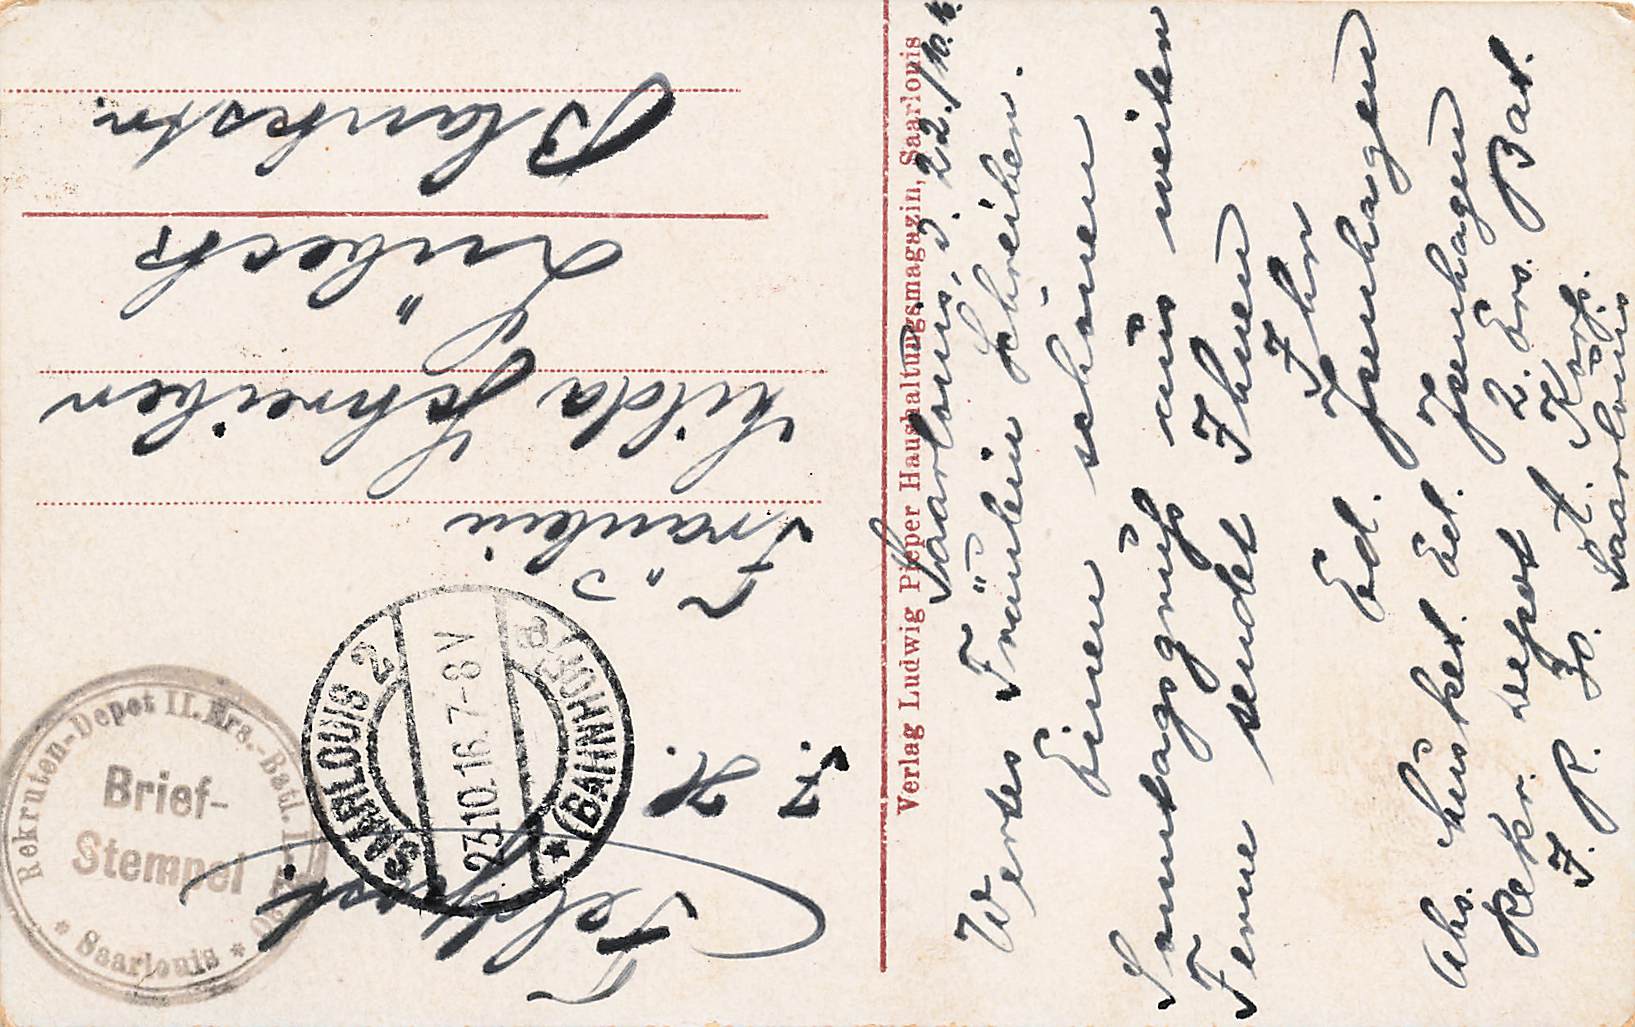 Feldpost.
Fräulein
Hilda Schreiber
Lübeck
Blankestr.
Rekruten-Depot II. Ers.-Batl. I.-R.
Brief-
Stempel
* Saarlouis *
SAARLOUIS 2
23.10.16.7-8V
* (BAHNHOF) a
Verlag Ludwig Pieper Haushaltungsmagazin, Saarlouis
Saarlouis, d. 22./10.
Wertes Fräulein Schreiber.
Einen schönen
Sonntagsgruß aus weiter
Ferne sendet Ihnen
Ihr
Ed. Isenhagen
Abs. Musket. Ed. Isenhagen
Rekr. Depot 2. Ers. Bat.
I. R. 30. Korp.
Saarlouis